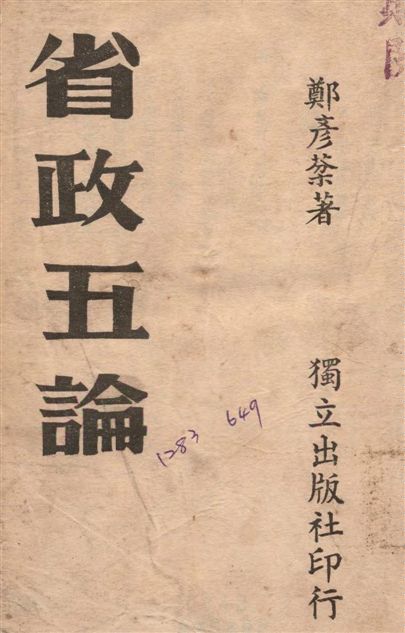 鄭彥棻著
省政五論
獨立出版社印行
1283 649